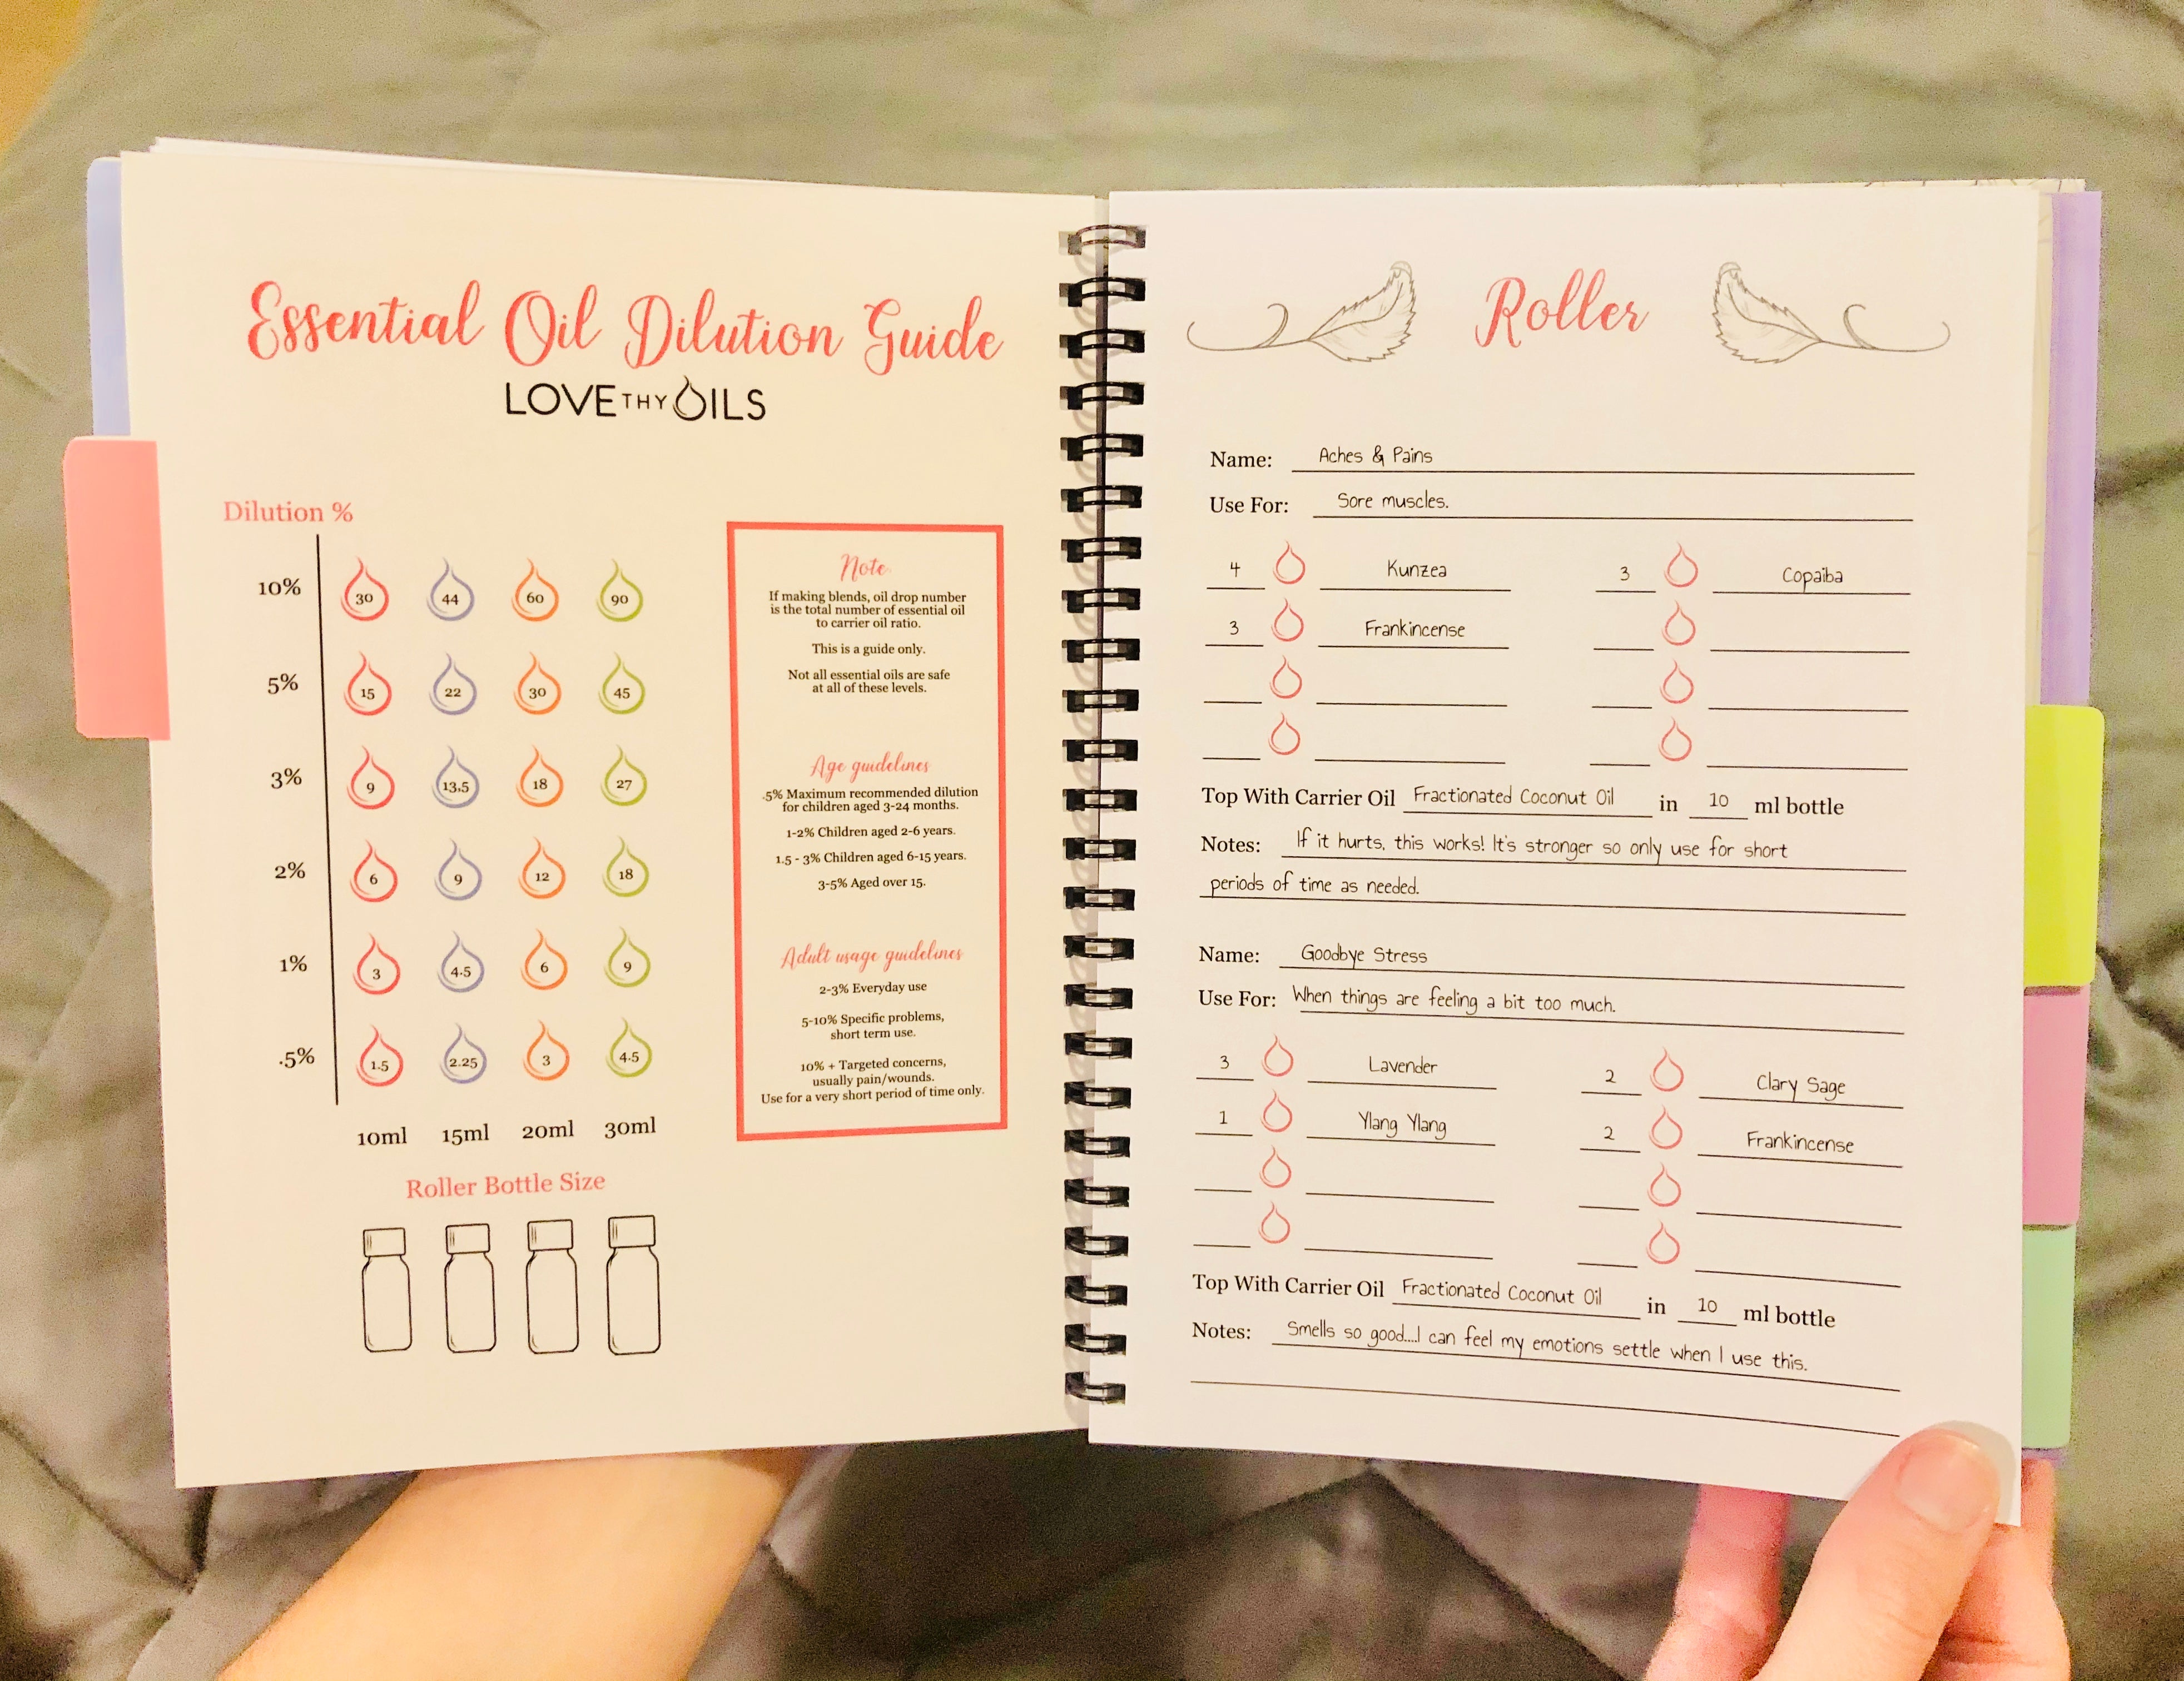 Essential Oil Dilution Guide
LOVE THY OILS
Dilution %
10% 30 44 60 90
5% 15 22 30 45
3% 9 13.5 18 27
2% 6 9 12 18
1% 3 4.5 6 9
.5% 1.5 2.25 3 4.5
10ml 15ml 20ml 30ml
Roller Bottle Size
Note
If making blends, oil drop number
is the total number of essential oil
to carrier oil ratio.
This is a guide only.
Not all essential oils are safe
at all of these levels.
Age guidelines
.5% Maximum recommended dilution
for children aged 3-24 months.
1-2% Children aged 2-6 years.
1.5 - 3% Children aged 6-15 years.
3-5% Aged over 15.
Adult usage guidelines
2-3% Everyday use
5-10% Specific problems,
short term use.
10% + Targeted concerns,
usually pain/wounds.
Use for a very short period of time only.
Roller
Name: Aches & Pains
Use For: Sore muscles.
4 Kunzea 3 Copaiba
3 Frankincense
Top With Carrier Oil Fractionated Coconut Oil in 10 ml bottle
Notes: If it hurts, this works! It's stronger so only use for short
periods of time as needed.
Name: Goodbye Stress
Use For: When things are feeling a bit too much.
3 Lavender 2 Clary Sage
1 Ylang Ylang 2 Frankincense
Top With Carrier Oil Fractionated Coconut Oil in 10 ml bottle
Notes: Smells so good....I can feel my emotions settle when I use this.